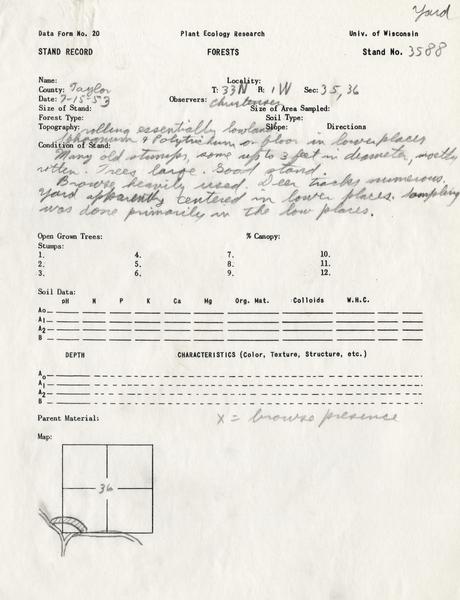 Yard
Data Form No. 20 Plant Ecology Research Univ. of Wisconsin
STAND RECORD FORESTS Stand No. 3588
Name: Locality:
County: Taylor T: 33N R: 1W Sec: 35, 36
Date: 7-15-53 Observers: Christensen
Size of Stand: Size of Area Sampled:
Forest Type: Soil Type:
Topography: rolling essentially lowland Slope: Directions
Sphagnum & Polytrichum on floor in lower places
Condition of Stand:
Many old stumps, some up to 3 feet in diameter, mostly
rotten. Trees large. Good stand.
Browse heavily used. Deer tracks numerous.
Yard apparently centered in lower places. Sampling
was done primarily in the low places.
Open Grown Trees: % Canopy:
Stumps:
1. 4. 7. 10.
2. 5. 8. 11.
3. 6. 9. 12.
Soil Data:
pH N P K Ca Mg Org. Mat. Colloids W.H.C.
A₀
A₁
A₂
B
DEPTH CHARACTERISTICS (Color, Texture, Structure, etc.)
A₀
A₁
A₂
B
Parent Material: X = browse presence
Map:
36